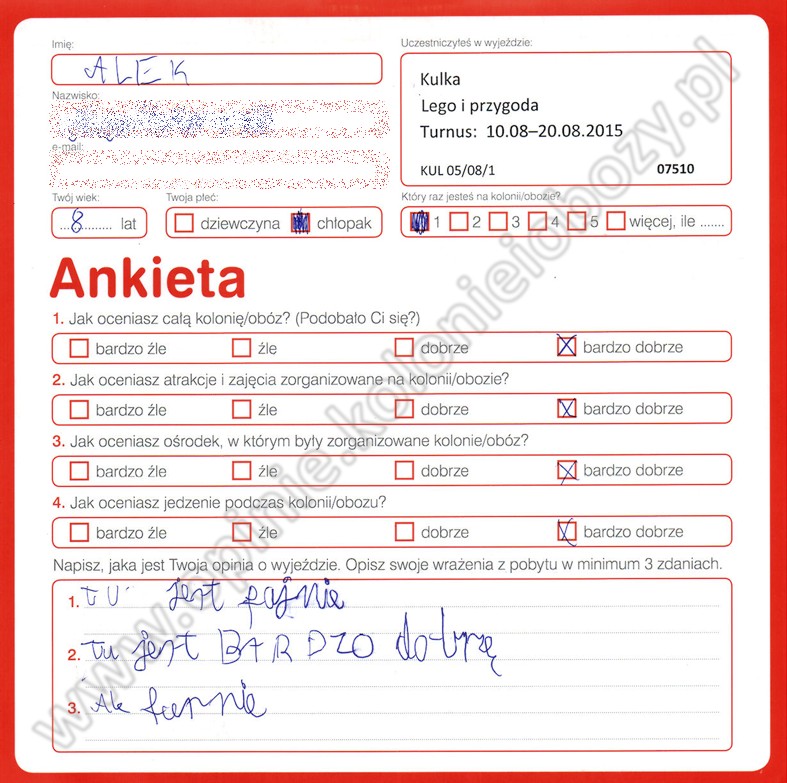 Imię:
ALEK
Nazwisko:
e-mail:
Twój wiek:
8 lat
Twoja płeć:
dziewczyna chłopak
Uczestniczyłeś w wyjeździe:
Kulka
Lego i przygoda
Turnus: 10.08–20.08.2015
KUL 05/08/1 07510
Który raz jesteś na kolonii/obozie?
1 2 3 4 5 więcej, ile .......
Ankieta
1. Jak oceniasz całą kolonię/obóz? (Podobało Ci się?)
bardzo źle źle dobrze bardzo dobrze
2. Jak oceniasz atrakcje i zajęcia zorganizowane na kolonii/obozie?
bardzo źle źle dobrze bardzo dobrze
3. Jak oceniasz ośrodek, w którym były zorganizowane kolonie/obóz?
bardzo źle źle dobrze bardzo dobrze
4. Jak oceniasz jedzenie podczas kolonii/obozu?
bardzo źle źle dobrze bardzo dobrze
Napisz, jaka jest Twoja opinia o wyjeździe. Opisz swoje wrażenia z pobytu w minimum 3 zdaniach.
1. TU jest fajnie
2. Tu jest BARDZO dobrzę
3. Ale
www.opinie.kolonieiobozy.pl